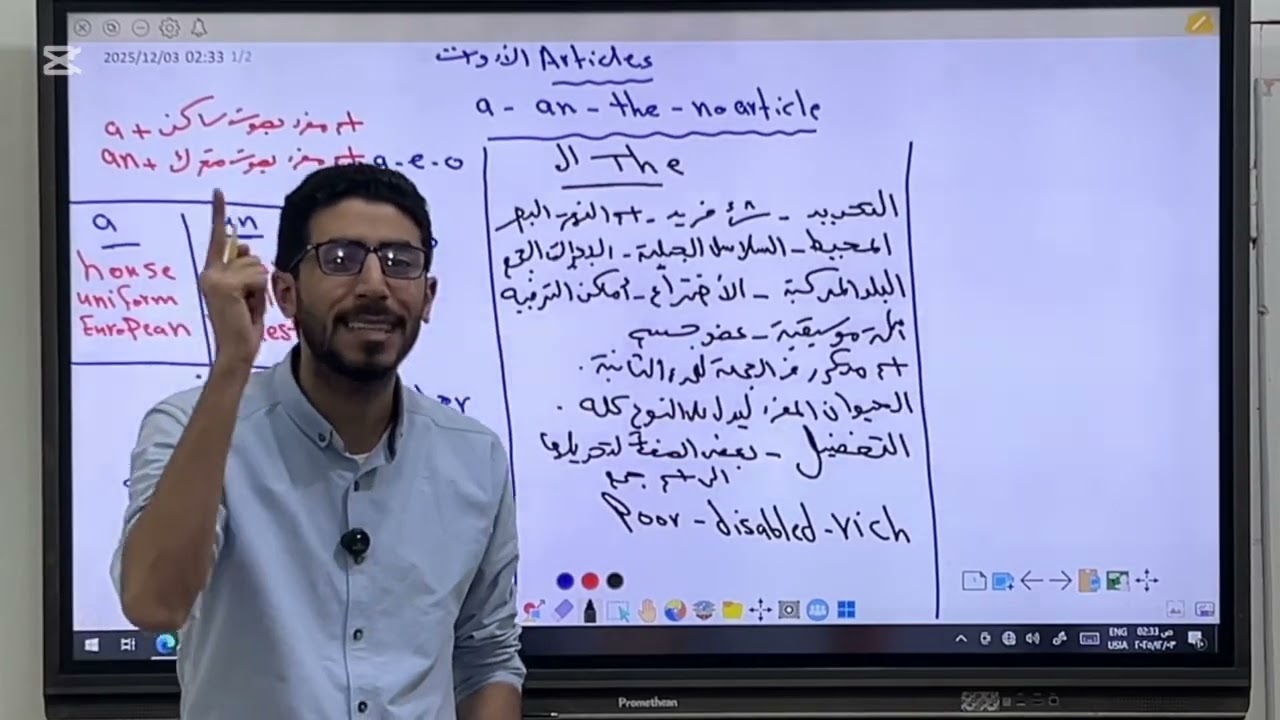 2025/12/03 02:33 1/2
الأدوات Articles
a - an - the - no article
a + اسم مفرد بصوت ساكن
an + اسم مفرد بصوت متحرك a-e-o
a
an
house
uniform
European
ال The
التحديد - شئ فريد - اسم النهر - البحر
المحيط - السلاسل الجبلية - البلاد الجمع
البلد المركبة - الأختراع - أماكن الترفيه
آلة موسيقية - عضو جسم
اسم مذكور في الجملة للمرة الثانية.
الحيوان المفرد ليدل على النوع كله.
التفضيل - بعض الصفات لتحويلها
الى اسم جمع
Poor - disabled - rich
ENG
USIA
02:33 ص
٢٠٢٥/١٢/٠٣
Promethean